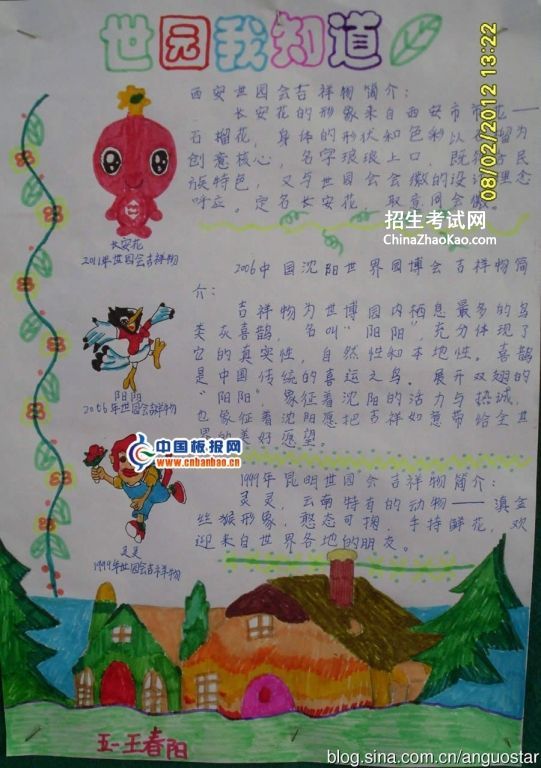 世园我知道
08/02/2012 13:22
西安世园会吉祥物简介:
长安花的形象来自西安市市花——
石榴花,身体的形状和色彩以石榴为
创意核心,名字琅琅上口,既
民
族特色,又与世园会会徽的设计理念
呼应。定名长安花,取意同会徽。
招生考试网
ChinaZhaoKao.com
长安花
2011年世园会吉祥物
2006中国沈阳世界园博会吉祥物简
介:
吉祥物为世博园内栖息最多的鸟
类灰喜鹊,名叫“阳阳”,充分体现了
它的真实性,自然性和本地性。喜鹊
是中国传统的喜运之鸟。展开双翅的
“阳阳”象征着沈阳的活力与热诚,
也象征着沈阳愿把吉祥如意带给全世
界的美好愿望。
阳阳
2006年世园会吉祥物
中国板报网
www.cnbanbao.cn
1999年昆明世园会吉祥物简介:
灵灵,云南特有的动物——滇金
丝猴形象,憨态可掬,手持鲜花,欢
迎来自世界各地的朋友。
灵灵
1999年世园会吉祥物
五一王春阳
blog.sina.com.cn/anguostar